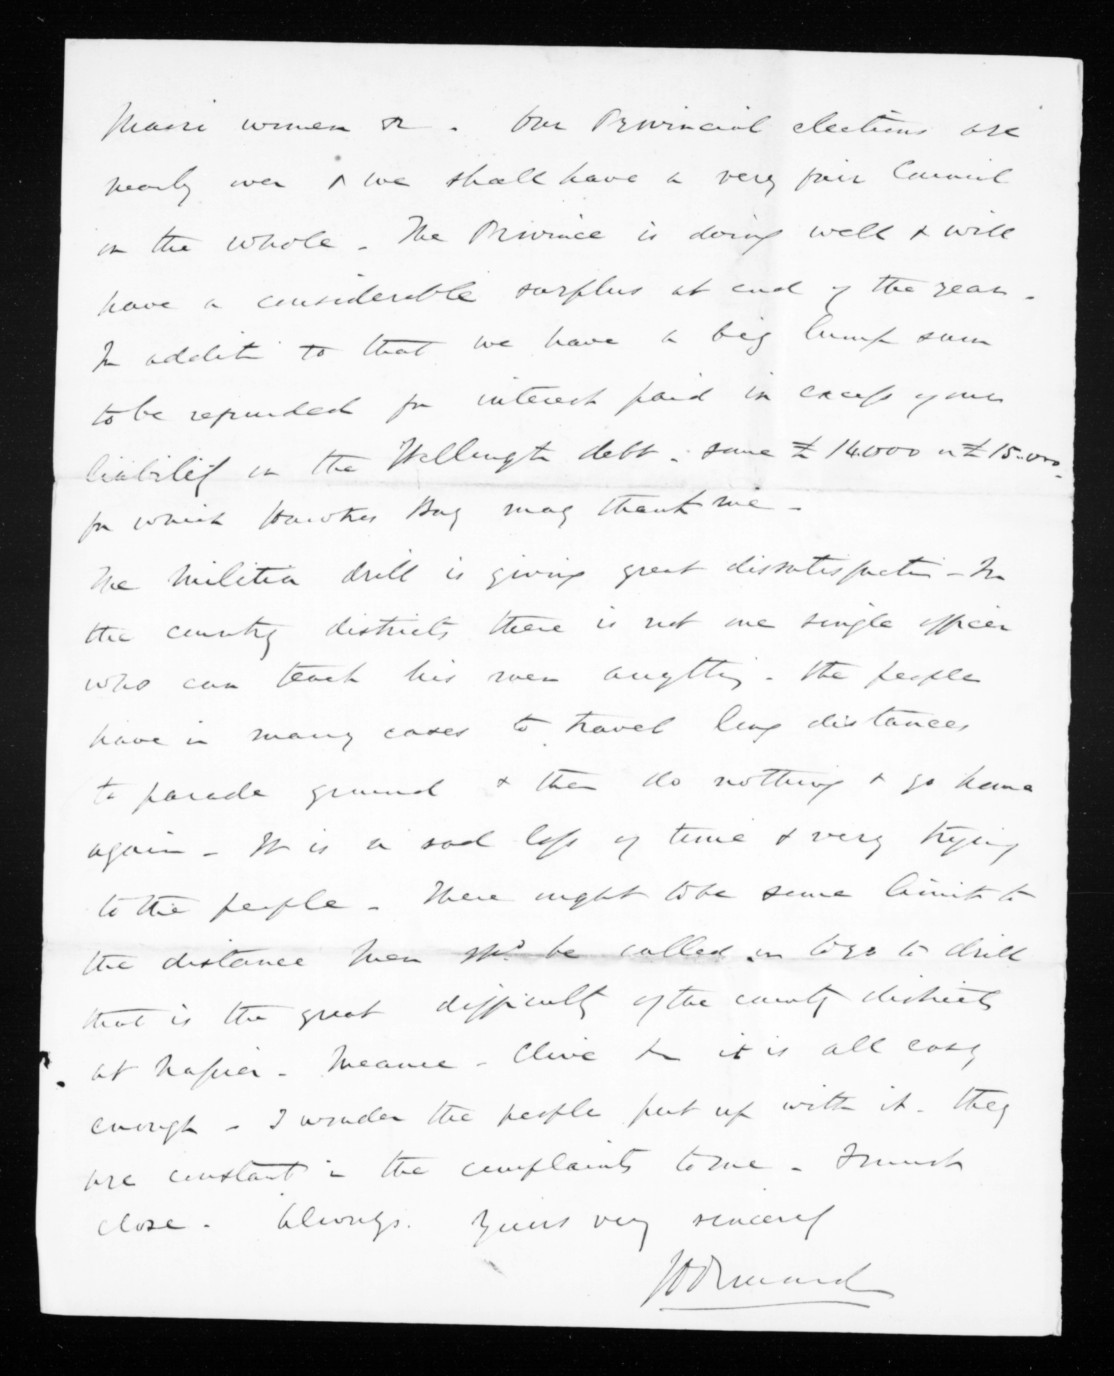 Maori women &c. Our Provincial elections are
nearly over & we shall have a very fair Council
on the whole. The Province is doing well & will
have a considerable surplus at end of the year.
In additn to that we have a big lump sum
to be refunded for interest paid in excess of our
liability on the Wellington debt. some £14.000 or £15.000.
for which Hawkes Bay may thank me.
The Militia drill is giving great dissatisfactn - In
the country districts there is not one single officer
who can teach his men anything. The people
have in many cases to travel long distances
to parade ground & then do nothing & go home
again - It is a sad loss of time & very trying
to the people. There ought to be some limit to
the distance men shd be called on to go to drill
that is the great difficulty of the country districts
at Napier - Meanee - Clive &c it is all easy
enough - I wonder the people put up with it. They
are constant in the complaints to me. I must
close. Always. Yours very sincerely
JD Ormond